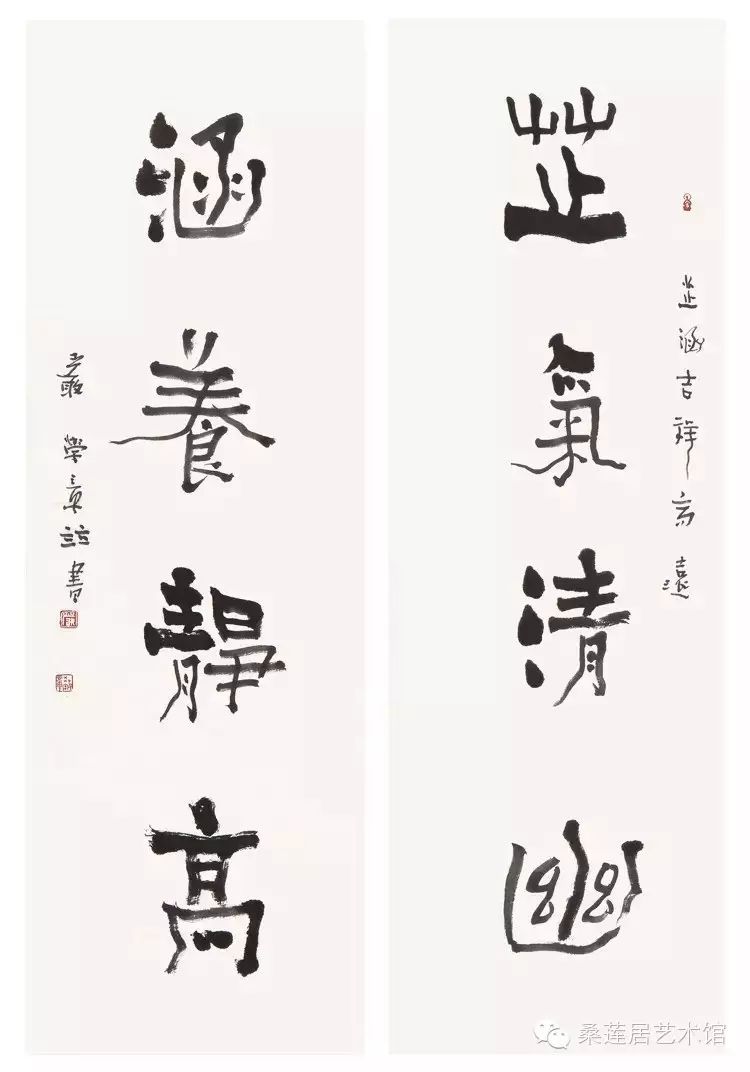 芷涵吉祥高遠
芷氣清幽
涵養靜高
嚴學章竝書
桑莲居艺术馆